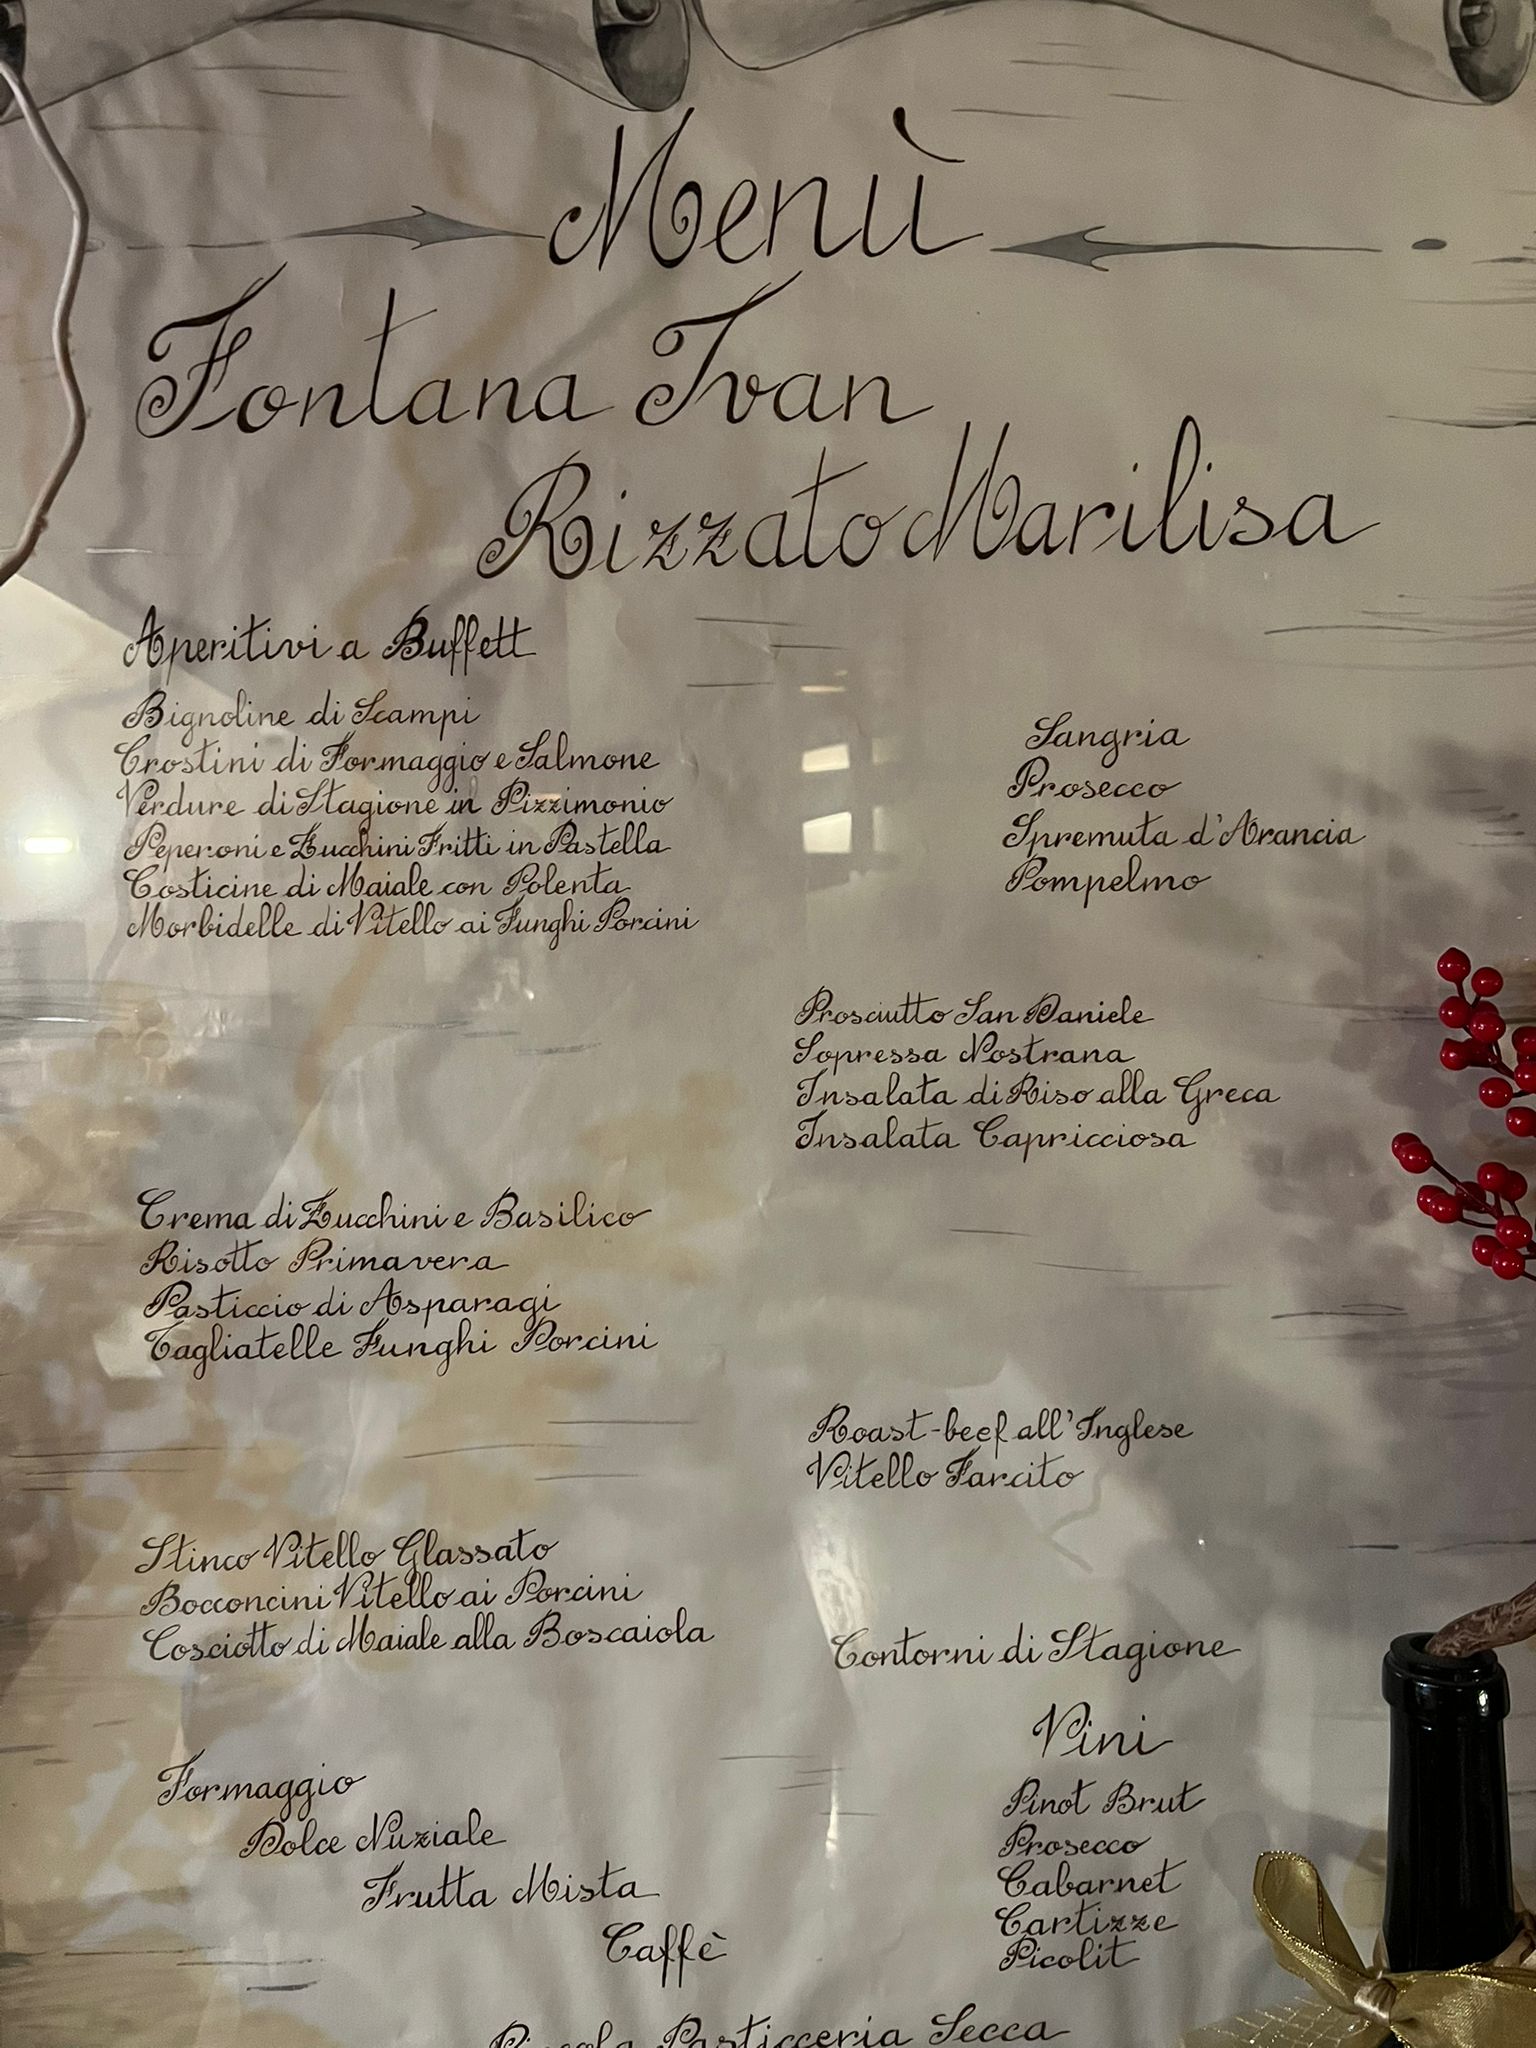 Menù
Fontana Ivan
Rizzato Marilisa
Aperitivi a Buffett
Bignoline di Scampi
Crostini di Formaggio e Salmone
Verdure di Stagione in Pizzimonio
Peperoni e Zucchini Fritti in Pastella
Costicine di Maiale con Polenta
Morbidelle di Vitello ai Funghi Porcini
Sangria
Prosecco
Spremuta d'Arancia
Pompelmo
Prosciutto San Daniele
Sopressa Nostrana
Insalata di Riso alla Greca
Insalata Capricciosa
Crema di Zucchini e Basilico
Risotto Primavera
Pasticcio di Asparagi
Tagliatelle Funghi Porcini
Roast-beef all'Inglese
Vitello Farcito
Stinco Vitello Glassato
Bocconcini Vitello ai Porcini
Cosciotto di Maiale alla Boscaiola
Contorni di Stagione
Formaggio
Dolce Nuziale
Frutta Mista
Caffè
Vini
Pinot Brut
Prosecco
Cabarnet
Cartizze
Picolit
Piccola Pasticceria Secca